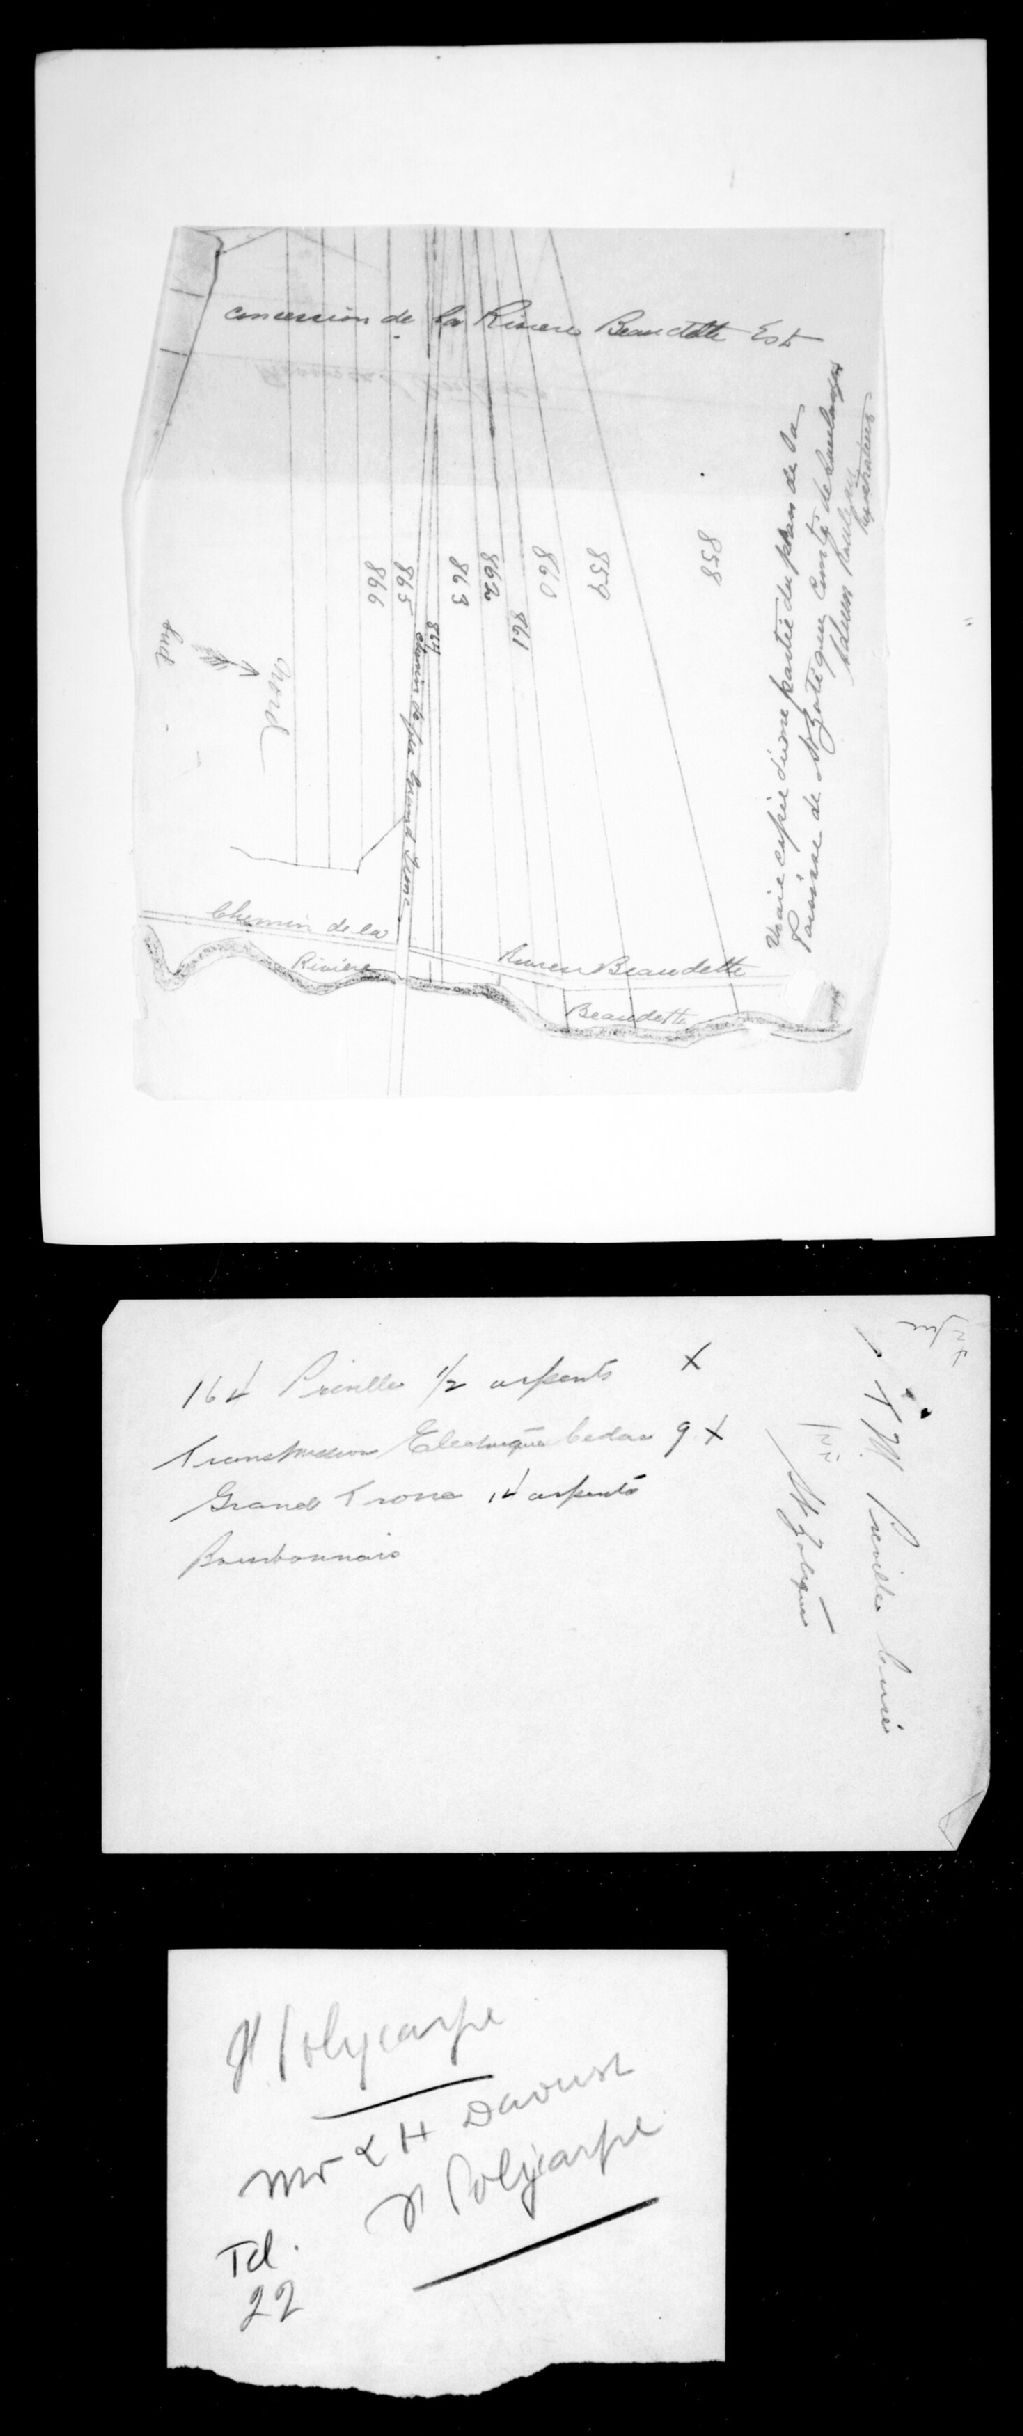 concession de la Riviere Beaudette Est
866
865
864
863
862
861
860
859
858
Chemin de fer Grand Tronc
Sud
Nord
Chemin de la Riviere Beaudette
Riviere Beaudette
Vraie copie d'une partie du plan de la
Paroisse de St Zotique Comté de Soulanges
Registrateur
164 Préville 1/2 arpents X
Transmission Electrique Cedar 9 X
Grand Tronc 14 arpents
Bourbonnais
M Préville Curé
St Zotique
St Polycarpe
Mr L H Daoust
St Polycarpe
Tel.
22